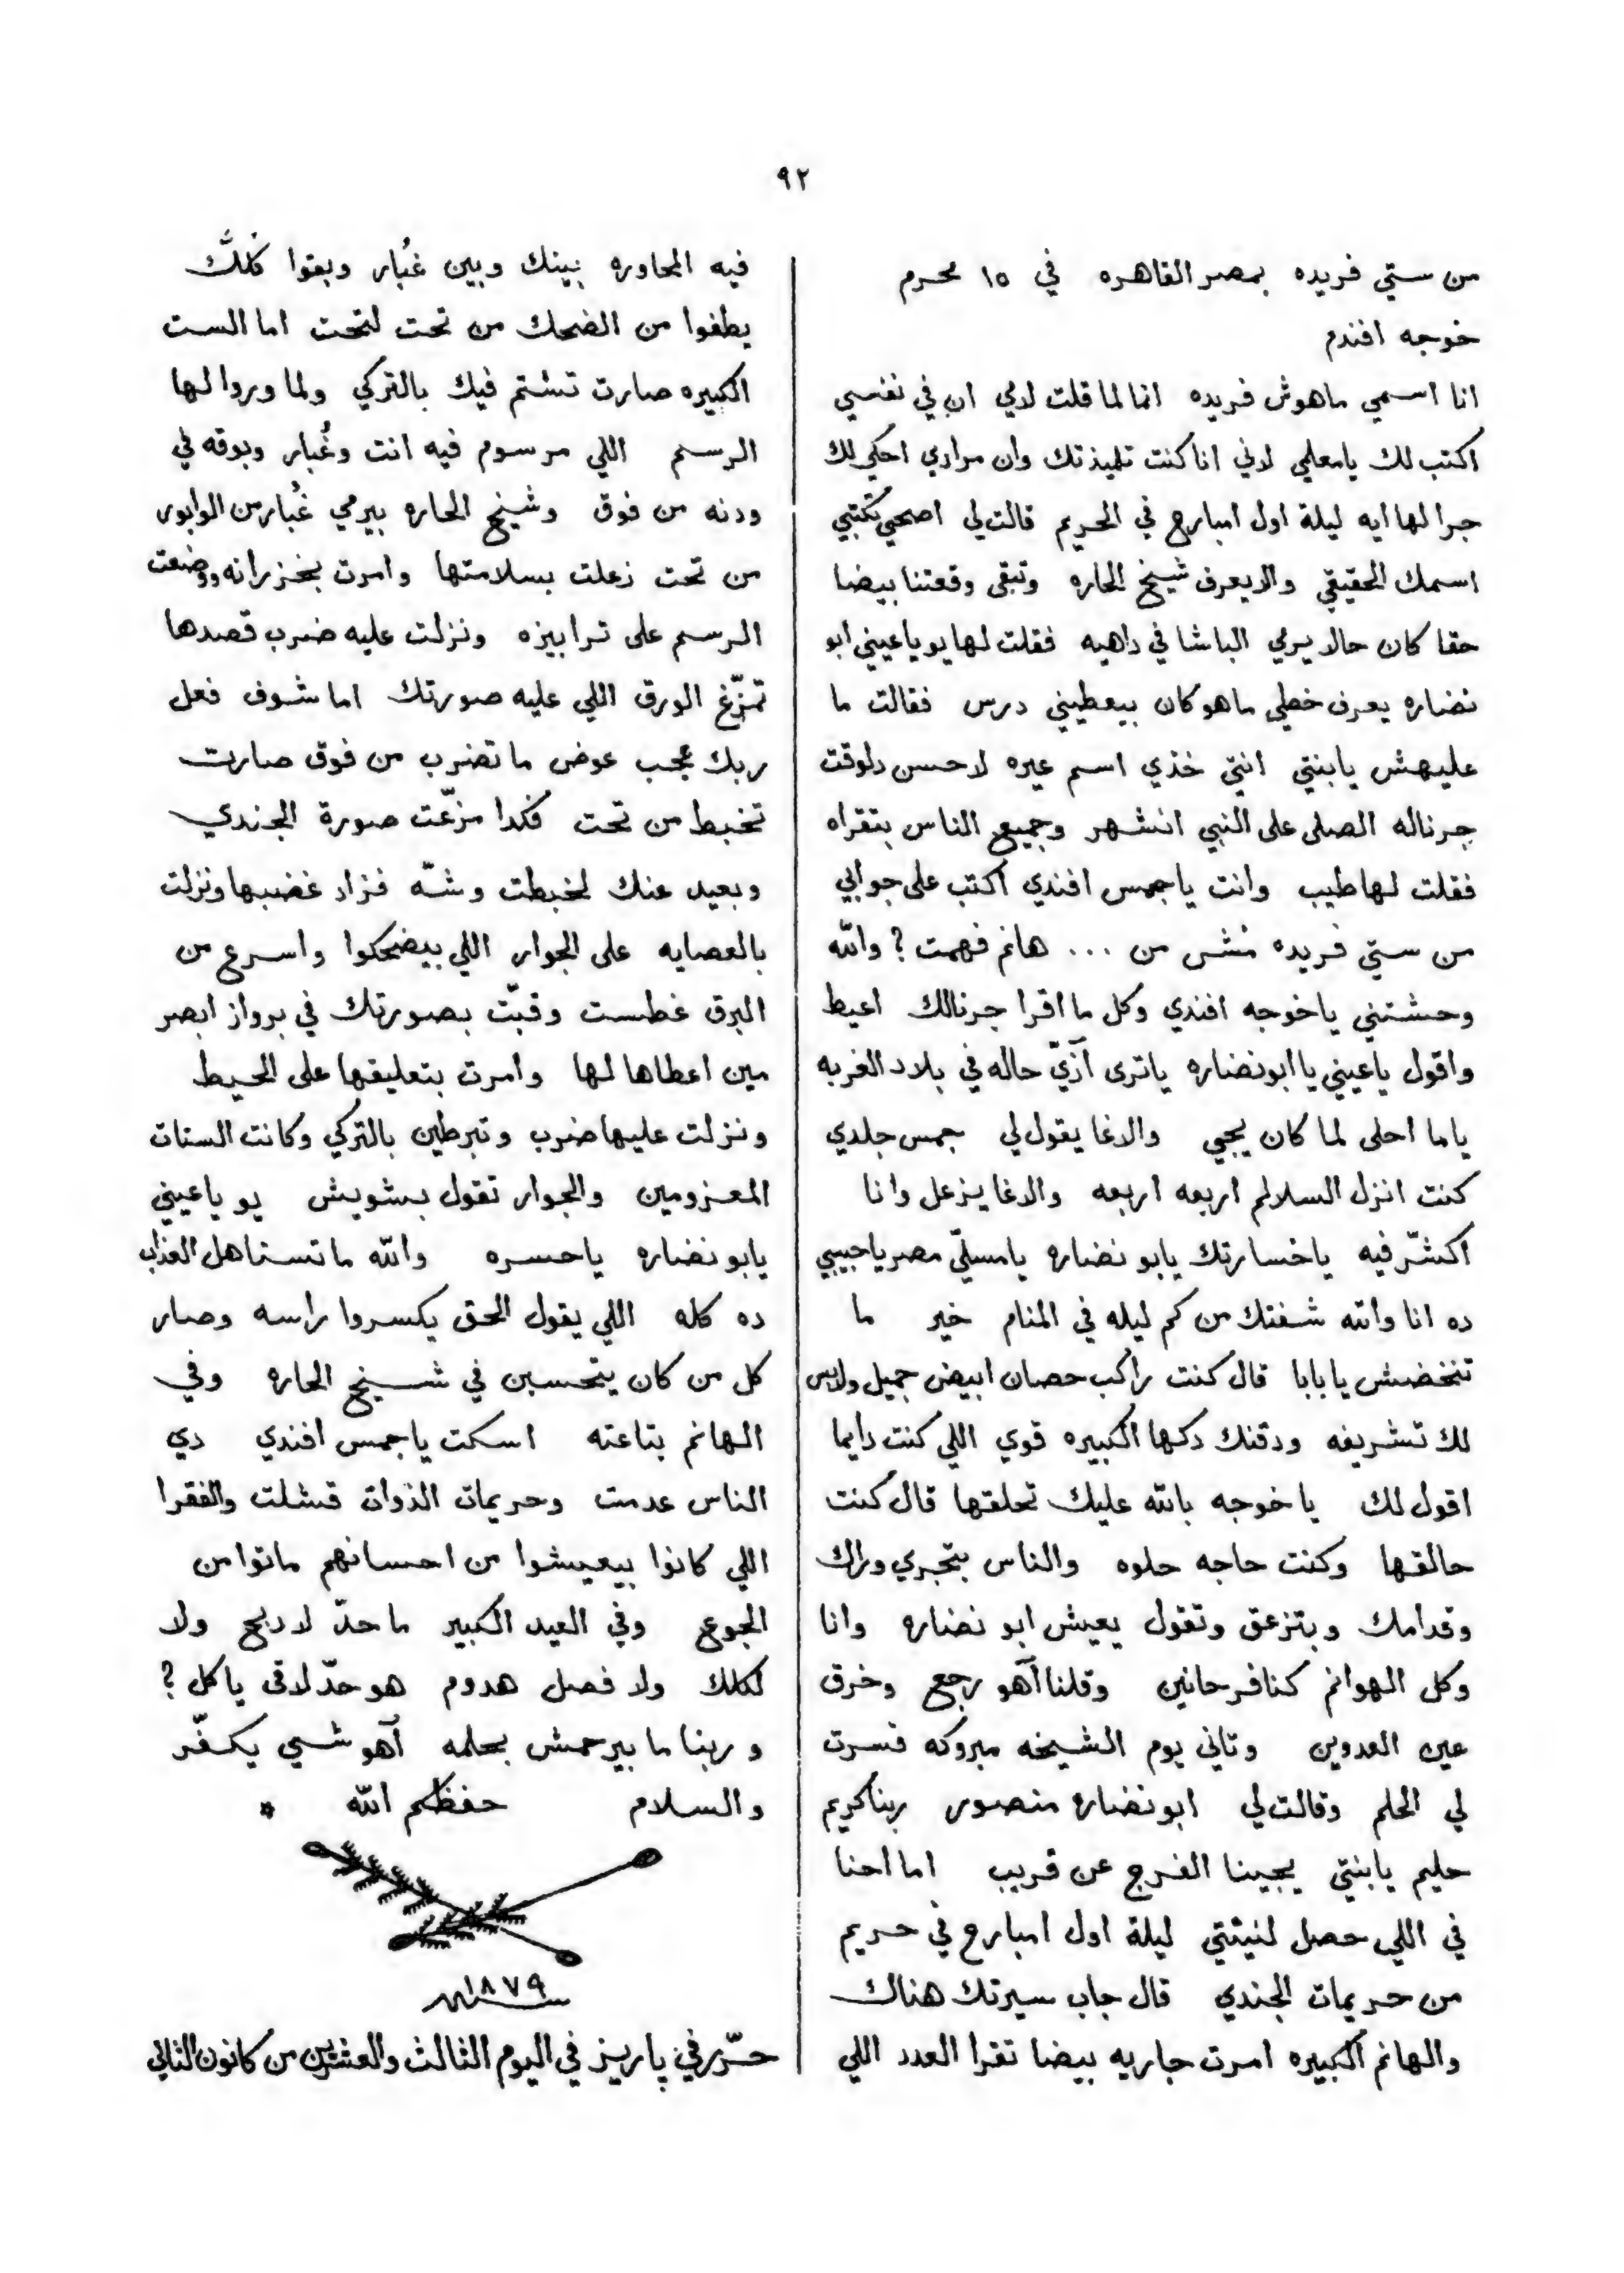 ٩٢
من ستي فريده بمصر القاهره في ١٥ محرم
خوجه افندم
انا اسمي ماهوش فريده انما لما قلت لامي ان في نفسي
اكتب لك يا معلمي لاني انا كنت تلميذتك وان مرادي احكي لك
جرا لها ايه ليلة اول امبارح في الحريم قالت لي اصحي تكتبي
اسمك الحقيقي والا يعرف شيخ الحاره وتبقى وقعتنا بيضا
حقا كان حالا يرمي الباشا في داهيه فقلت لها يو يا عيني ابو
نضاره يعرف خطي ما هو كان بيعطيني درس فقالت ما
عليهش يا بنتي انتي خذي اسم عيره لاحسن دلوقت
جرناله الصلى على النبي انشهر وجميع الناس بتقراه
فقلت لها طيب وانت يا جمس افندي اكتب على جوابي
من ستي فريده مُش من ... هانم فهمت ? والله
وحشتني يا خوجه افندي وكل ما اقرا جرنالك اعيط
واقول يا عيني يا ابو نضاره يا ترى آزيّ حاله في بلاد الغربه
ياما احلى لما كان يجي والاغا يقول لي جمس جلدي
كنت انزل السلالم اربعه اربعه والاغا يزعل وانا
اكشّر فيه يا خسارتك يابو نضاره يا مسلّي مصر يا حبيبي
ده انا والله شفتك من كم ليله في المنام خير ما
تنخضش يا بابا قال كنت راكب حصان ابيض جميل ولابس
لك تشريفه ودقنك دكها الكبيره قوي اللي كنت دايما
اقول لك يا خوجه بالله عليك تحلقها قال كنت
حالقها وكنت حاجه حلوه والناس بتجري وراك
وقدامك وبتزعق وتقول يعيش ابو نضاره وانا
وكل الهوانم كنا فرحانين وقلنا آهو رجع وخرق
عين العدوين وتاني يوم الشيخه مبروكه فسرت
لي الحلم وقالت لي ابو نضاره منصور ربنا كريم
حليم يا بنتي يجيبنا الفرج عن قريب اما احنا
في اللي حصل لنينتي ليلة اول امبارح في حريم
من حريمات الجندي قال جاب سيرتك هناك
والهانم الكبيره امرت جاريه بيضا تقرا العدد اللي
فيه المحاوره بينك وبين غُبار وبقوا كلك
يطفوا من الضحك من تحت لتحت اما الست
الكبيره صارت تشتم فيك بالتركي ولما وروا لها
الرسم اللي مرسوم فيه انت وغُبار وبوقه في
ودنه من فوق وشيخ الحاره بيرمي غُبار من الوابور
من تحت زعلت بسلامتها وامرت بخزرانه ووضعت
الرسم على ترابيزه ونزلت عليه ضرب قصدها
تمزّغ الورق اللي عليه صورتك اما شوف فعل
ربك عجب عوض ما تضرب من فوق صارت
تخبط من تحت فكدا مزّعت صورة الجندي
وبعيد عنك لخبطت وشّه فزاد غضبها ونزلت
بالعصايه على الجوار اللي بيضحكوا واسرع من
البرق غطست وقبّت بصورتك في برواز ابصر
مين اعطاها لها وامرت بتعليقها على الحيط
ونزلت عليها ضرب وتبرطين بالتركي وكانت الستات
المعزومين والجوار تقول بشويش يو يا عيني
يابو نضاره يا حسره والله ما تستاهل العذاب
ده كله اللي يقول الحق يكسروا راسه وصار
كل من كان يتحسبن في شيخ الحاره وفي
الهانم بتاعته اسكت يا جمس افندي دي
الناس عدمت وحريمات الذوات قشلت والفقرا
اللي كانوا بيعيشوا من احسانهم ماتوا من
الجوع وفي العيد الكبير ما حدّ لا دبح ولا
لكلك ولا فصل هدوم هو حدّ لاقى ياكل ?
وربنا ما بيرحمش بحلمه آهو شي يكفّر
والسلام حفظكم الله *
١٨٧٩ سنه
حرّر في پاريز في اليوم الثالث والعشرين من كانون الثاني